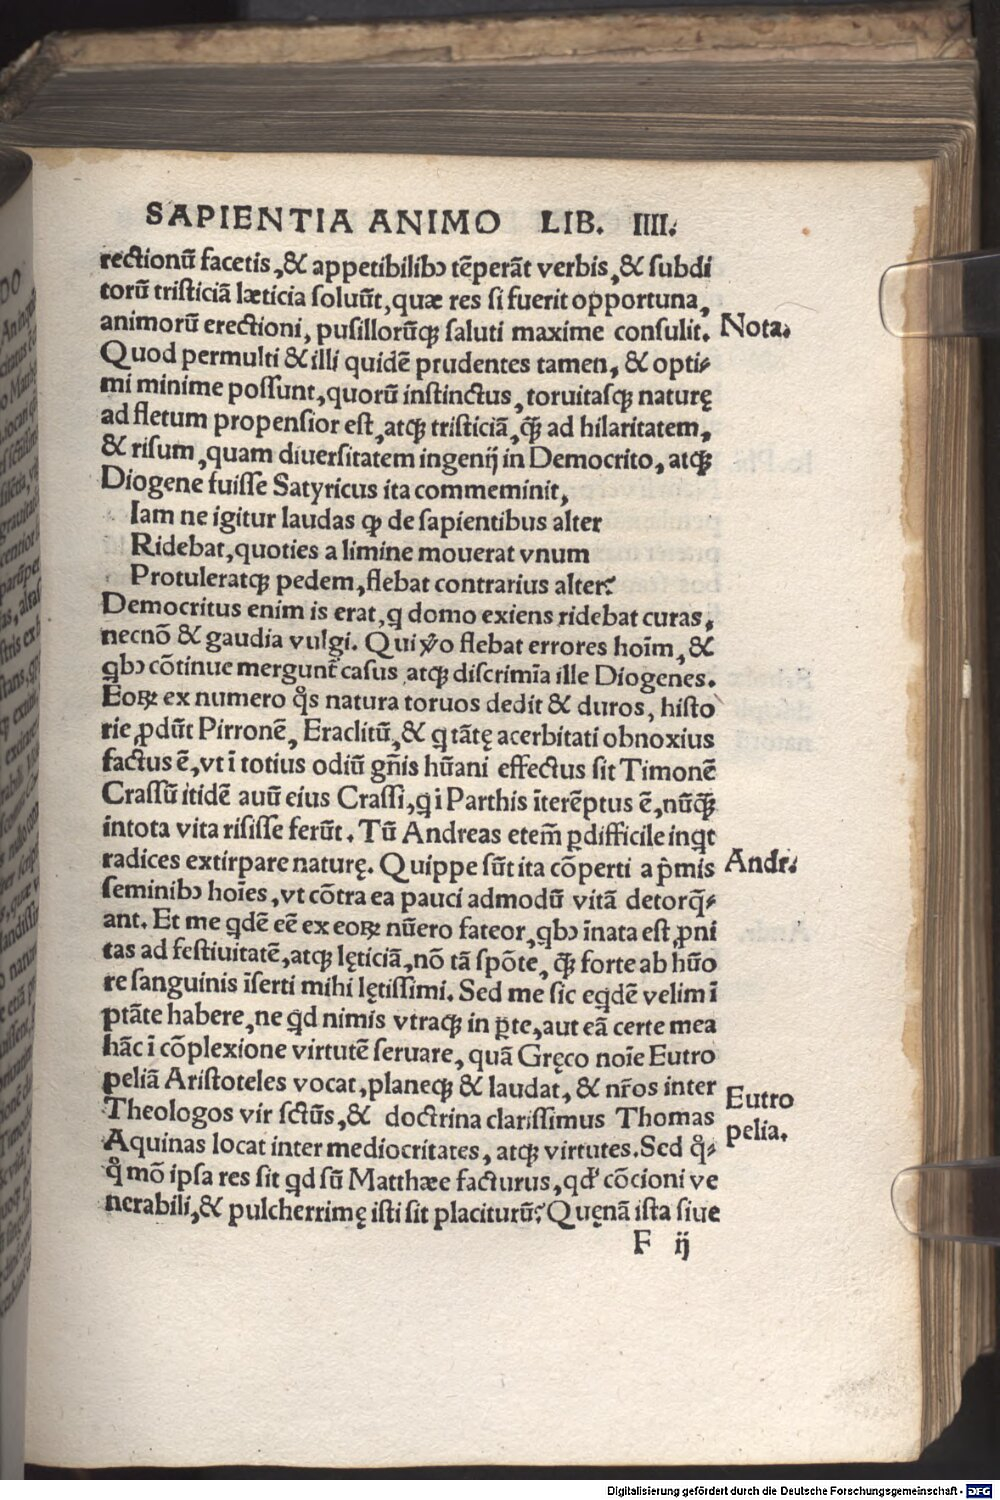 SAPIENTIA ANIMO LIB. IIII.
rectionũ facetis, & appetibilibꝫ tẽperãt verbis, & subdi
torũ tristiciã læticia soluũt, quæ res si fuerit opportuna,
animorũ erectioni, pusillorũqꝫ saluti maxime consulit. Nota.
Quod permulti & illi quidẽ prudentes tamen, & opti-
mi minime possunt, quorũ instinctus, toruitasqꝫ naturę
ad fletum propensior est, atqꝫ tristiciã, q̃ꝫ ad hilaritatem,
& risum, quam diuersitatem ingenij in Democrito, atqꝫ
Diogene fuisse Satyricus ita commeminit,
Iam ne igitur laudas qꝫ de sapientibus alter
Ridebat, quoties a limine mouerat vnum
Protuleratqꝫ pedem, flebat contrarius alter?
Democritus enim is erat, q domo exiens ridebat curas,
necnõ & gaudia vulgi. Qui ṽo flebat errores hoĩm, &
qbꝫ cõtinue mergunt̃ casus atqꝫ discrimĩa ille Diogenes.
Eoꝝ ex numero qͦs natura toruos dedit & duros, histo
rie ꝓdũt Pirronẽ, Eraclitũ, & q tãtę acerbitati obnoxius
factus ẽ, vt ĩ totius odiũ gñis hũani effectus sit Timonẽ
Crassũ itidẽ auũ eius Crassi, q ĩ Parthis ĩterẽptus ẽ, nũq̃ꝫ
intota vita risisse ferũt. Tũ Andreas etem̃ ꝑdifficile inqt
radices extirpare naturę. Quippe sũt ita cõperti a p̃mis Andr.
seminibꝫ hoĩes, vt cõtra ea pauci admodũ vitã detorq̃-
ant. Et me qdẽ eẽ ex eoꝝ nũero fateor, qbꝫ ĩnata est ꝓni
tas ad festiuitatẽ, atqꝫ lęticiã, nõ tã spõte, q̃ꝫ forte ab hũo
re sanguinis ĩserti mihi lętissimi. Sed me sic eqdẽ velim ĩ
ptãte habere, ne qd nimis vtraqꝫ in ꝑte, aut eã certe mea
hãc ĩ cõplexione virtutẽ seruare, quã Gręco noĩe Eutro
peliã Aristoteles vocat, planeqꝫ & laudat, & nr̃os inter Eutro
Theologos vir sctũs, & doctrina clarissimus Thomas pelia.
Aquinas locat inter mediocritates, atqꝫ virtutes. Sed qͦ-
qͦ mõ ipsa res sit qd sũ Matthæe facturus, qd' cõcioni ve
nerabili, & pulcherrimę isti sit placiturũ? Quęnã ista siue
F ij
Digitalisierung gefördert durch die Deutsche Forschungsgemeinschaft - DFG